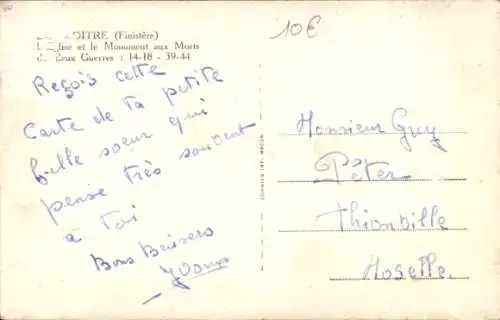 OITRE (Finistère)
L'Eglise et le Monument aux Morts
Deux Guerres : 14-18 - 39-44
10€
Reçois cette
Carte de Ta petite
belle soeur qui
pense très souvent
à Toi
Bons Baisers
Yvonne
COMBIER IMP. MACON
Monsieur Guy
Péter
Thionville
Moselle.